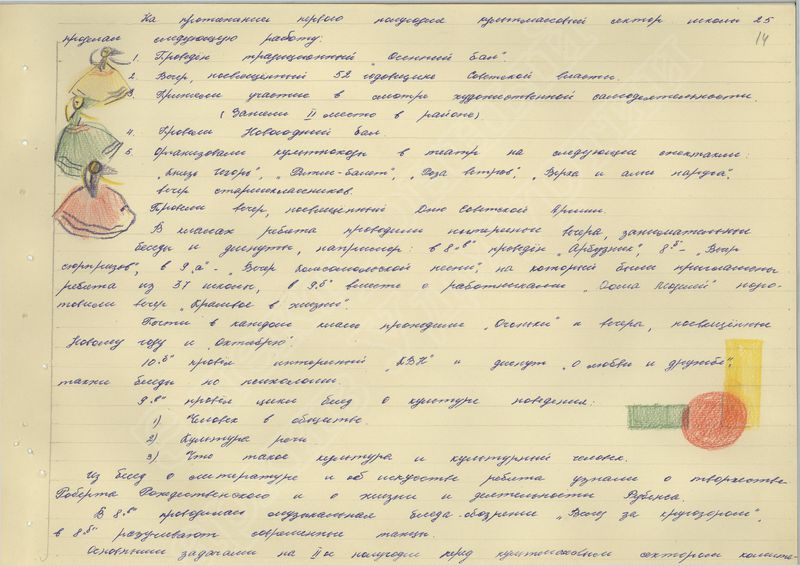 На протяжении первого полугодия культмассовый сектор школы 25
14
проделал следующую работу:
1. Проведён традиционный „Осенний бал".
2. Вечер, посвящённый 52 годовщине Советской власти.
3. Приняли участие в смотре художественной самодеятельности.
(Заняли II место в районе)
4. Провели Новогодний бал.
5. Организовали культпоходы в театр на следующие спектакли:
„Князь Игорь", „Роза ветров",
вечер старшеклассников.
Провели вечер, посвящённый Дню Советской Армии.
В классах ребята проводили интересные вечера, занимательные
беседы и диспуты, например: в 8 „в" проведён „Арбузник", 8 „б" - „Вечер
сюрпризов", в 9 „а" - „Вечер Комсомольской песни", на который были приглашены
ребята из 37 школы, в 9 „б" вместе с работниками „Дома моделей" подго-
товили вечер „Красивое в жизни".
Почти в каждом классе проходили „Огоньки" и вечера, посвящённые
Новому году и „Октябрю".
10 „б" провёл интересный „КВН" и диспут „О любви и дружбе",
также беседы по психологии.
9 „в" провёл цикл бесед о культуре поведения:
1) Человек в обществе
2) Культура речи
3) Что такое культура и культурный человек.
Из бесед о литературе и об искусстве ребята узнали о творчестве
Роберта Рождественского и о жизни и деятельности Рубенса.
В 8 „в" проводилась музыкальная беседа-обозрение „Вслед за кругозором",
в 8 „б" разучивают современные танцы.
Основными задачами на II ое полугодие перед культмассовым сектором комите-